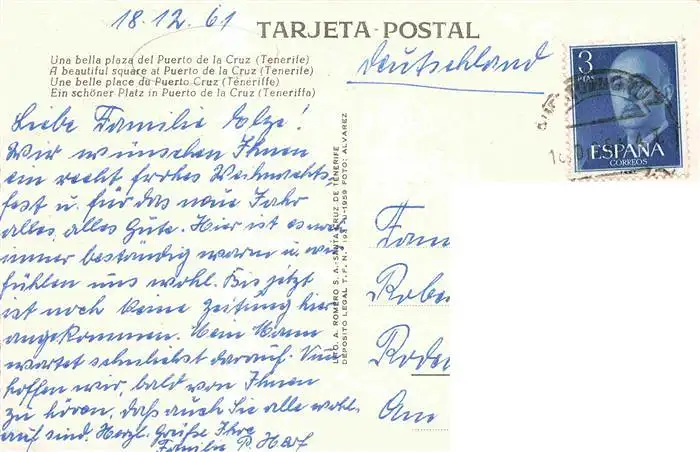 18.12.61
TARJETA-POSTAL
Una bella plaza del Puerto de la Cruz (Tenerife)
A beautiful square at Puerto de la Cruz (Tenerife)
Une belle place du Puerto Cruz (Téneriffe)
Ein schöner Platz in Puerto de la Cruz (Teneriffa)
Deutschland
3
PTS
ESPAÑA
CORREOS
Liebe Familie
Wir wünschen Ihnen
ein recht frohes Weihnachts
fest u. für das neue Jahr
alles, alles Gute. Hier ist es
immer beständig warm u. wir
fühlen uns wohl. Bis jetzt
ist noch keine Zeitung hier
angekommen. Mein Mann
wartet sehnlichst darauf. Nun
hoffen wir, bald von Ihnen
zu hören, daß auch Sie alle wohl
auf sind. Herzl. Grüße Ihre
Familie P.
A. ROMERO S. A.-SANTA CRUZ DE TENERIFE
DEPÓSITO LEGAL T. F. N.° 193 - 1959 FOTO: ALVAREZ
Fam
Robe
Rode
Am